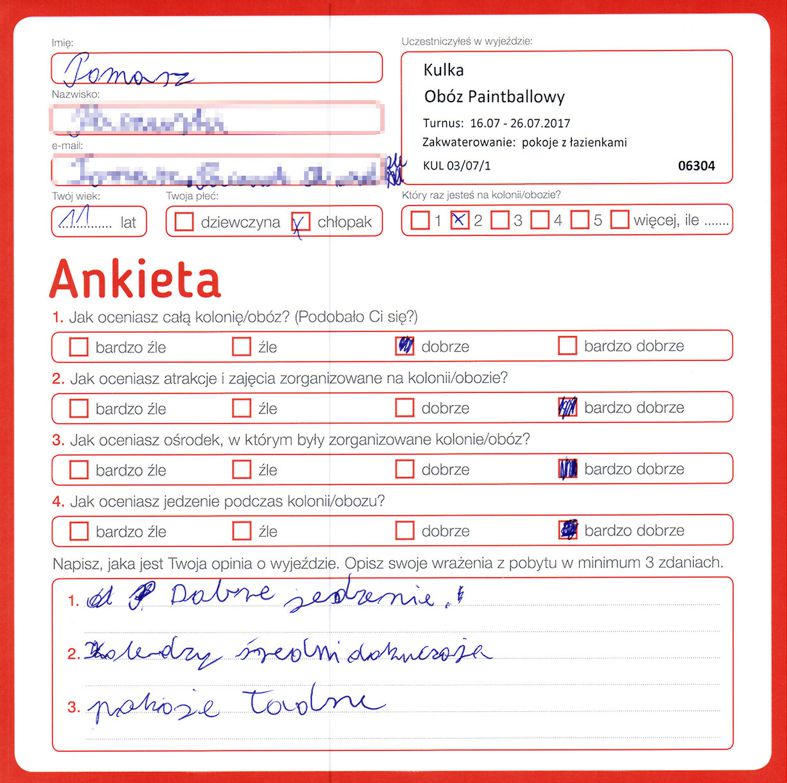 Imię:
Tomasz
Nazwisko:
e-mail:
Twój wiek:
11 lat
Twoja płeć:
dziewczyna chłopak
Uczestniczyłeś w wyjeździe:
Kulka
Obóz Paintballowy
Turnus: 16.07 - 26.07.2017
Zakwaterowanie: pokoje z łazienkami
KUL 03/07/1 06304
Który raz jesteś na kolonii/obozie?
1 2 3 4 5 więcej, ile .......
Ankieta
1. Jak oceniasz całą kolonię/obóz? (Podobało Ci się?)
bardzo źle źle dobrze bardzo dobrze
2. Jak oceniasz atrakcje i zajęcia zorganizowane na kolonii/obozie?
bardzo źle źle dobrze bardzo dobrze
3. Jak oceniasz ośrodek, w którym były zorganizowane kolonie/obóz?
bardzo źle źle dobrze bardzo dobrze
4. Jak oceniasz jedzenie podczas kolonii/obozu?
bardzo źle źle dobrze bardzo dobrze
Napisz, jaka jest Twoja opinia o wyjeździe. Opisz swoje wrażenia z pobytu w minimum 3 zdaniach.
1. Dobre jedzenie.
2. Koledzy średni dokuczają
3. pokoje ładne